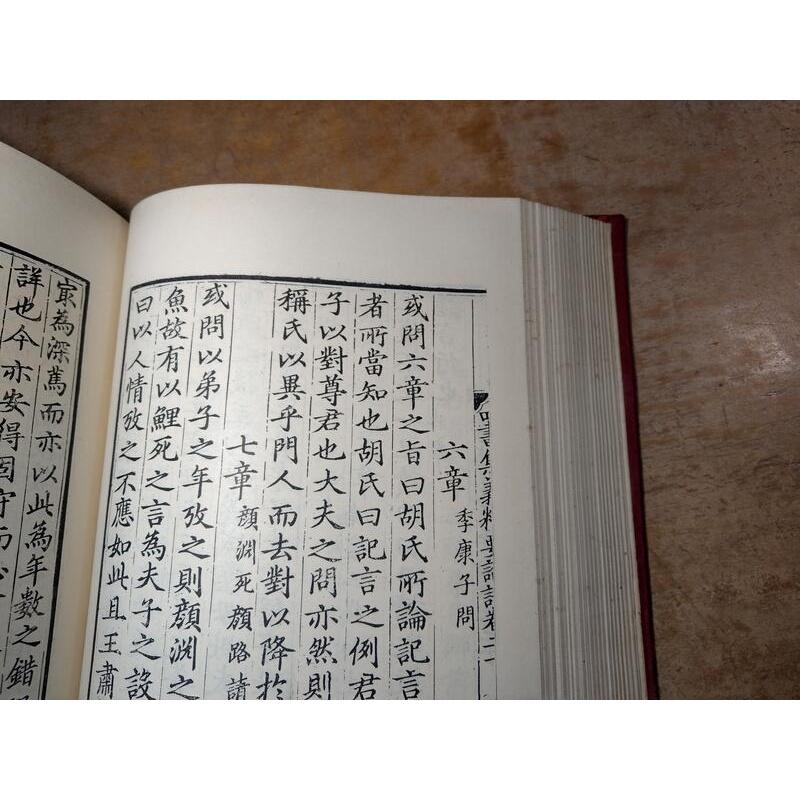 四書集義精要論語卷二
六章 季康子問
或問六章之旨曰胡氏所論記言
者所當知也胡氏曰記言之例君
子以對尊君也大夫之問亦然則
稱氏以異乎門人而去對以降於
七章 顔淵死顔路請
或問以弟子之年攷之則顔淵之
魚故有以鯉死之言為夫子之設
曰以人情攷之不應如此且王肅
冣為深篤而亦以此為年數之錯
詳也今亦安得固守而